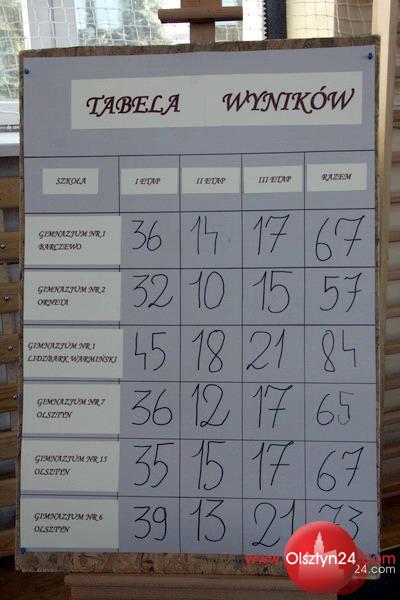 TABELA WYNIKÓW
SZKOŁA I ETAP II ETAP III ETAP RAZEM
GIMNAZJUM NR 1
BARCZEWO
36 14 17 67
GIMNAZJUM NR 2
ORNETA
32 10 15 57
GIMNAZJUM NR 1
LIDZBARK WARMIŃSKI
45 18 21 84
GIMNAZJUM NR 7
OLSZTYN
36 12 17 65
GIMNAZJUM NR 15
OLSZTYN
35 15 17 67
GIMNAZJUM NR 6
OLSZTYN
39 13 21 73
www.Olsztyn24.com
24.com